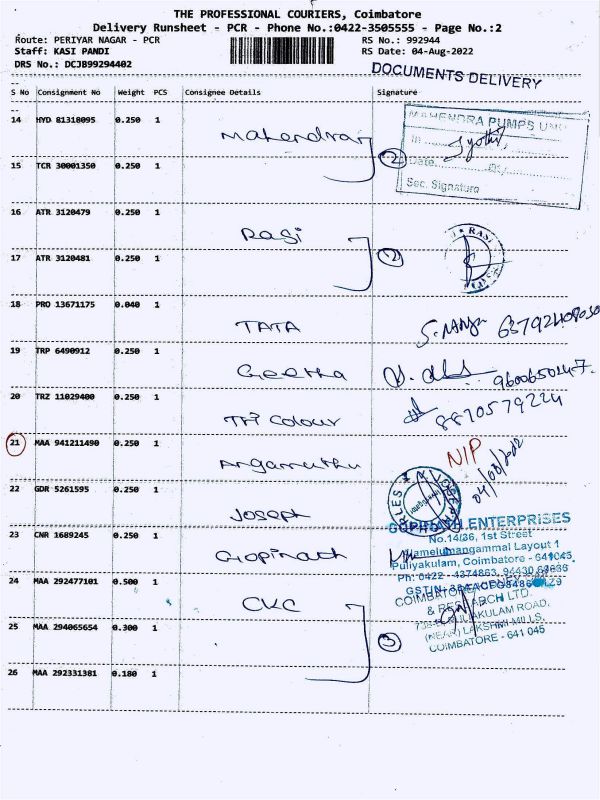 THE PROFESSIONAL COURIERS, Coimbatore
Delivery Runsheet - PCR - Phone No.:0422-3505555 - Page No.:2
Route: PERIYAR NAGAR - PCR RS No.: 992944
Staff: KASI PANDI RS Date: 04-Aug-2022
DRS No.: DCJB99294402
DOCUMENTS DELIVERY
S No Consignment No Weight PCS Consignee Details Signature
14 HYD 81318095 0.250 1 Mahendra
MAHENDRA PUMPS UNIT
In
Jyothi
Date
Sec. Signature
2
15 TCR 30001350 0.250 1
16 ATR 3120479 0.250 1 Rasi
RASI
2
17 ATR 3120481 0.250 1
18 PRO 13671175 0.040 1 TATA
19 TRP 6490912 0.250 1 Geetha 9600650247
20 TRZ 11029400 0.250 1 Tri Colour 8870579224
21 MAA 941211490 0.250 1 N/P
04/08/2022
22 GDR 5261595 0.250 1 Joseph
23 CNR 1689245 0.250 1 Gopinath
GOPINATH ENTERPRISES
No.14/36, 1st Street
Puliyakulam, Coimbatore - 641045
Ph: 0422 - 4374863,
24 MAA 292477101 0.500 1 CKC
COIMBATORE
& RESEARCH LTD.
PULIAKULAM ROAD,
(NEAR) LAKSHMI MILLS,
COIMBATORE - 641 045
25 MAA 294065654 0.300 1
3
26 MAA 292331381 0.180 1